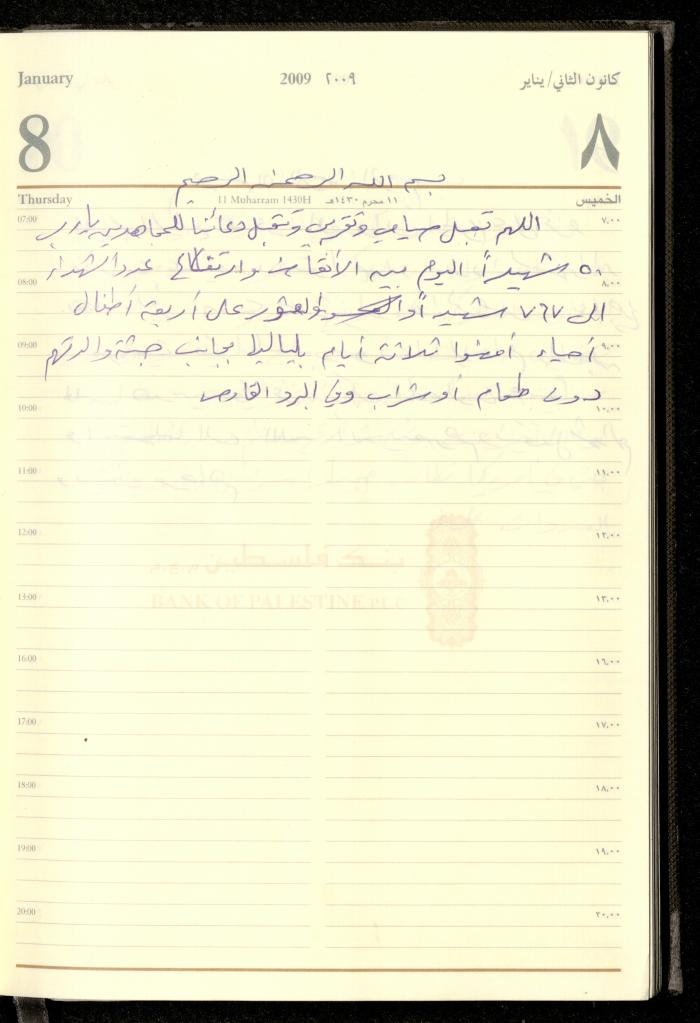 January
2009 ٢٠٠٩
كانون الثاني/يناير
8
٨
بسم الله الرحمن الرحيم
Thursday
11 Muharram 1430H
١١ محرم ١٤٣٠هـ
الخميس
اللهم تقبل صيامي وتقربي وتقبل دعائنا للمجاهدين يا رب
٥٠ شهيداً اليوم بين الأنقاض وارتفاع عدد الشهداء
الى ٧٦٧ شهيداً والعثور على أربعة أطفال
أحياء أمضوا ثلاثة أيام بلياليها بجانب جثة والدتهم
دون طعام أو شراب وفي البرد القارص
07:00 ٧,٠٠
08:00 ٨,٠٠
09:00 ٩,٠٠
10:00 ١٠,٠٠
11:00 ١١,٠٠
12:00 ١٢,٠٠
بنك فلسطين
BANK OF PALESTINE PLC
13:00 ١٣,٠٠
16:00 ١٦,٠٠
17:00 ١٧,٠٠
18:00 ١٨,٠٠
19:00 ١٩,٠٠
20:00 ٢٠,٠٠